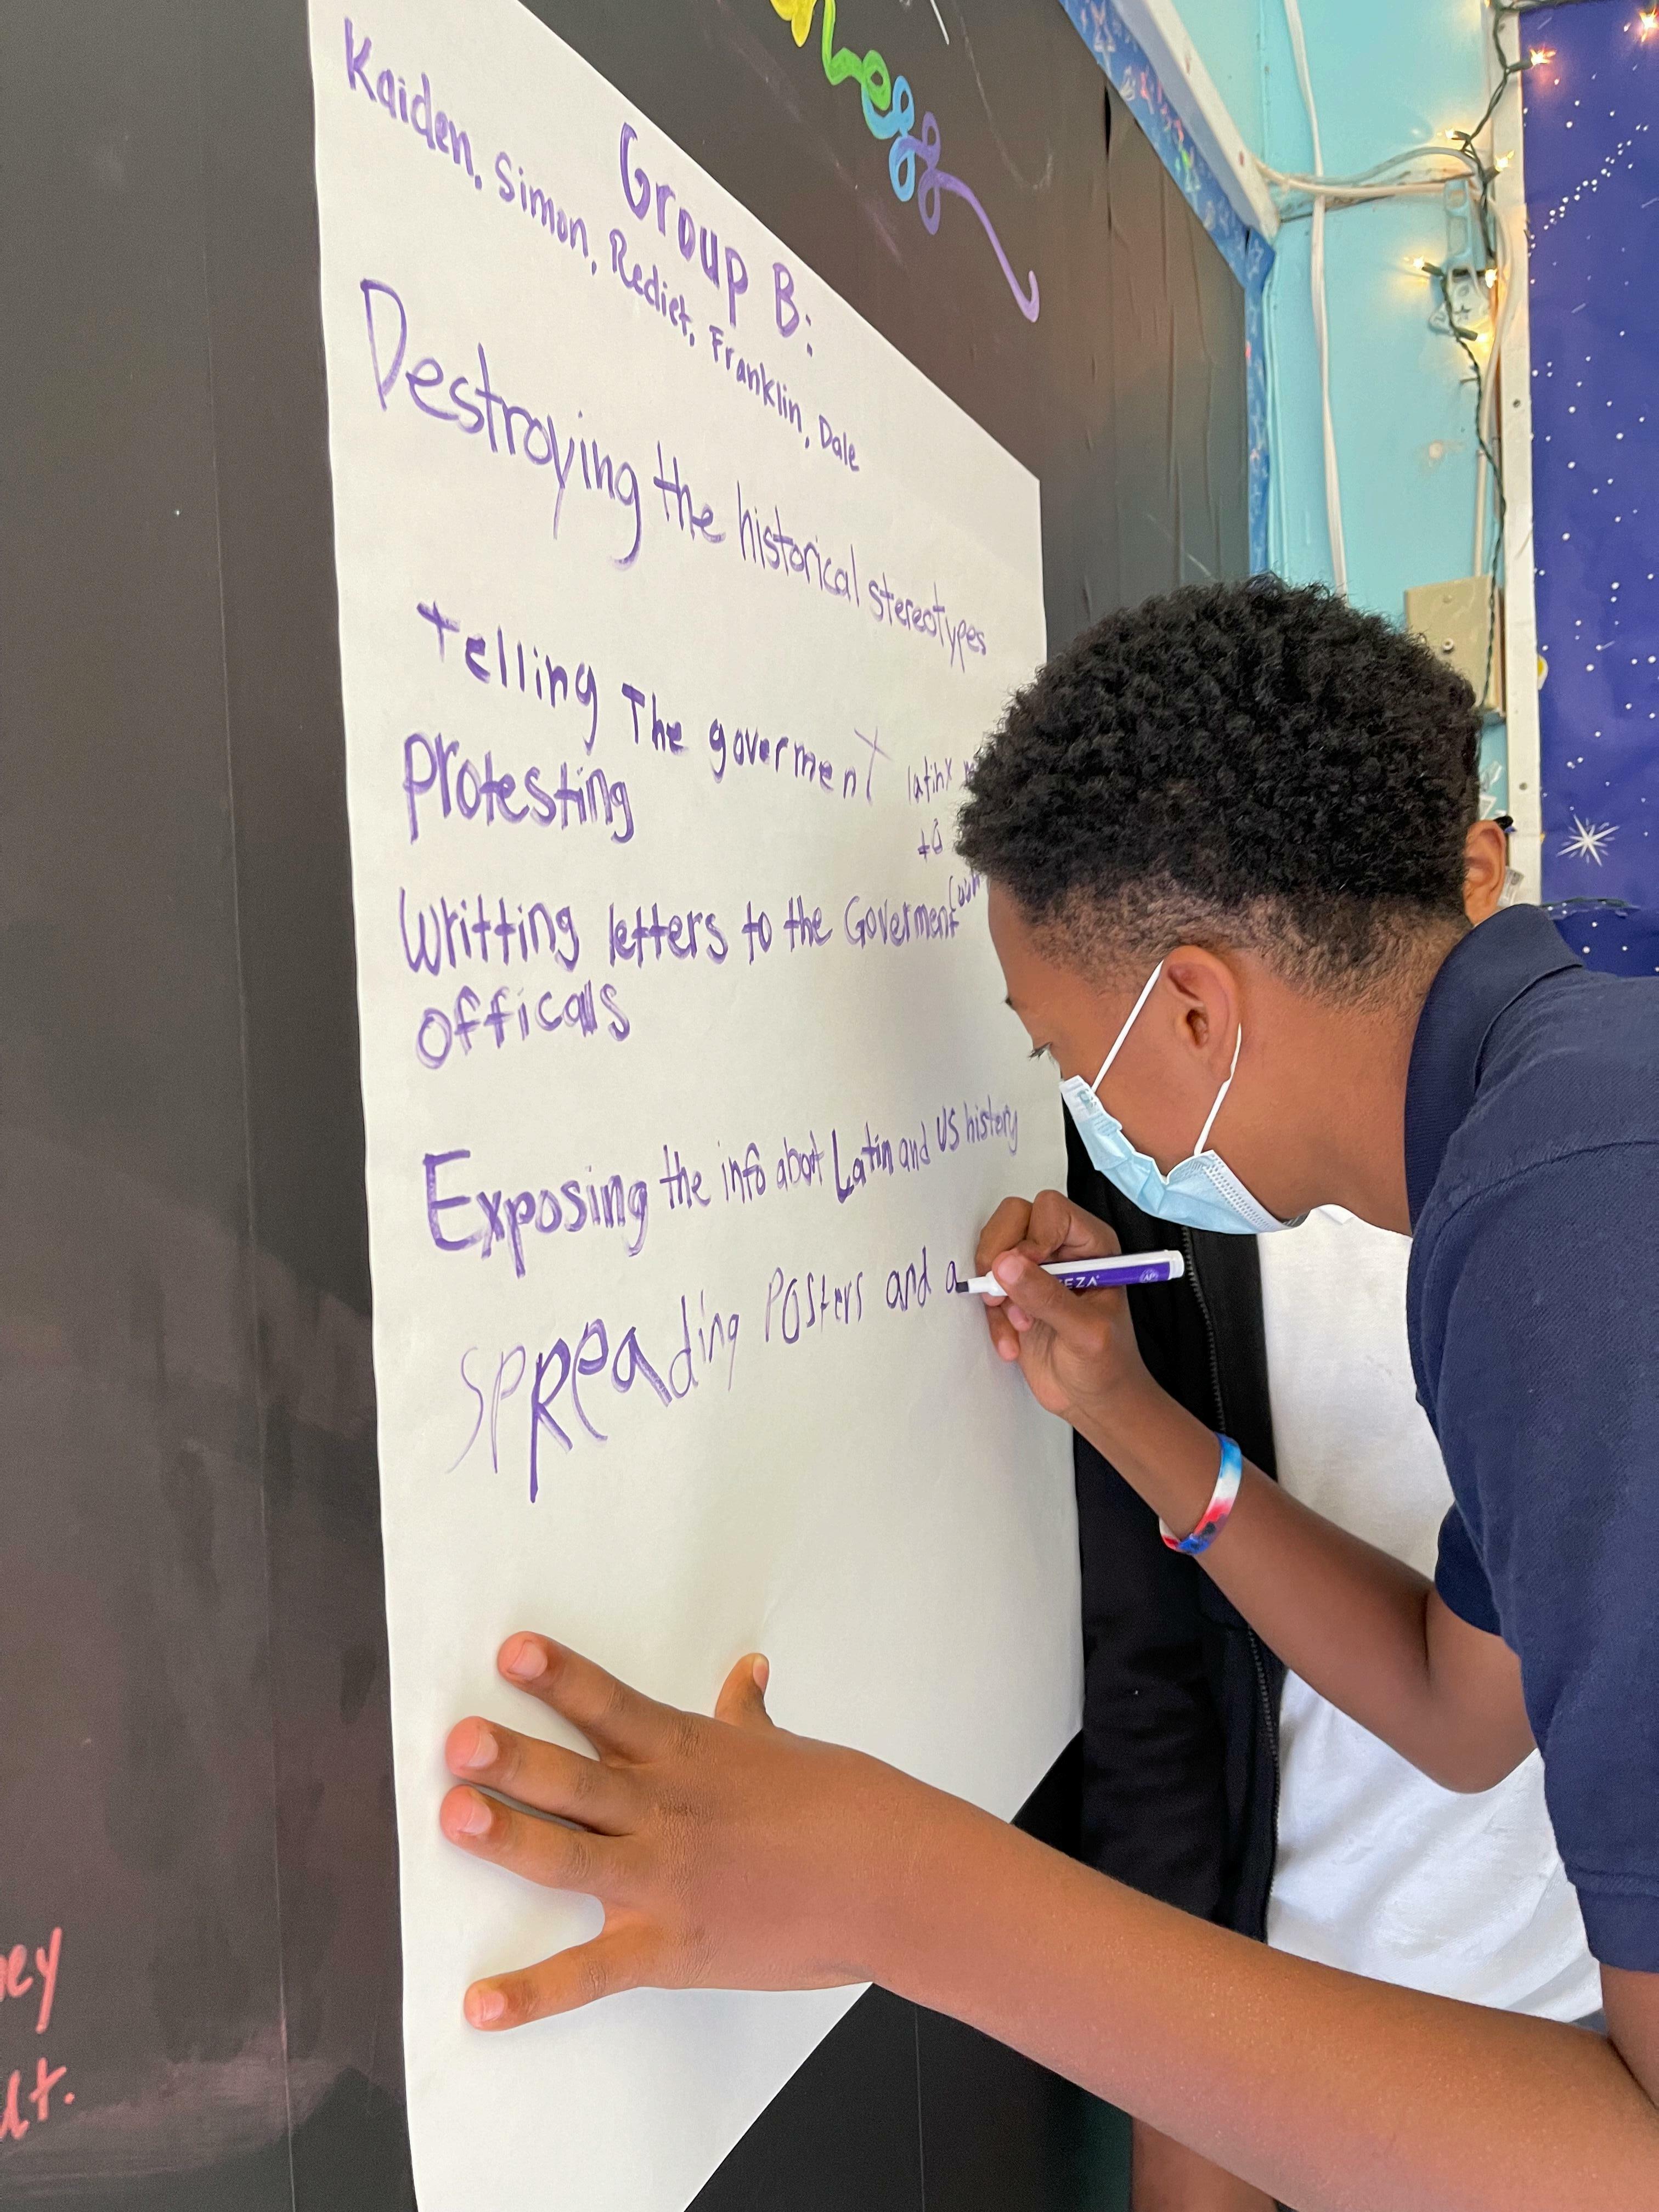 Group B:
Kaiden, Simon, Rediet, Franklin, Dale
Destroying the historical stereotypes
telling The goverment latinx
to
protesting
Writting letters to the Goverment
officals
Exposing the info about Latin and US history
spreading Posters and a
EZA
ey
lt.